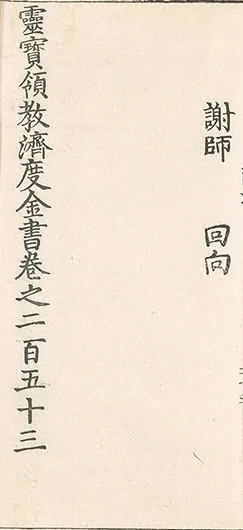 謝師　回向
靈寶領教濟度金書卷之二百五十三